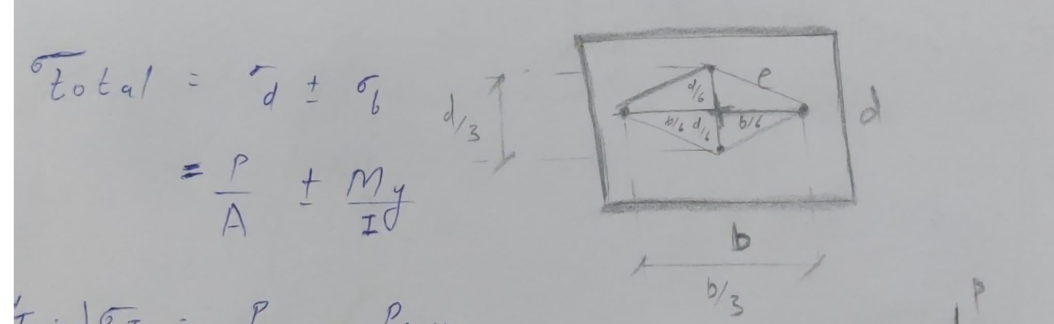 σtotal = σd ± σb
= P/A ± My/I
d/3
d/6
e
b/6 d/6 b/6
d
b
b/3
P
σ = P P